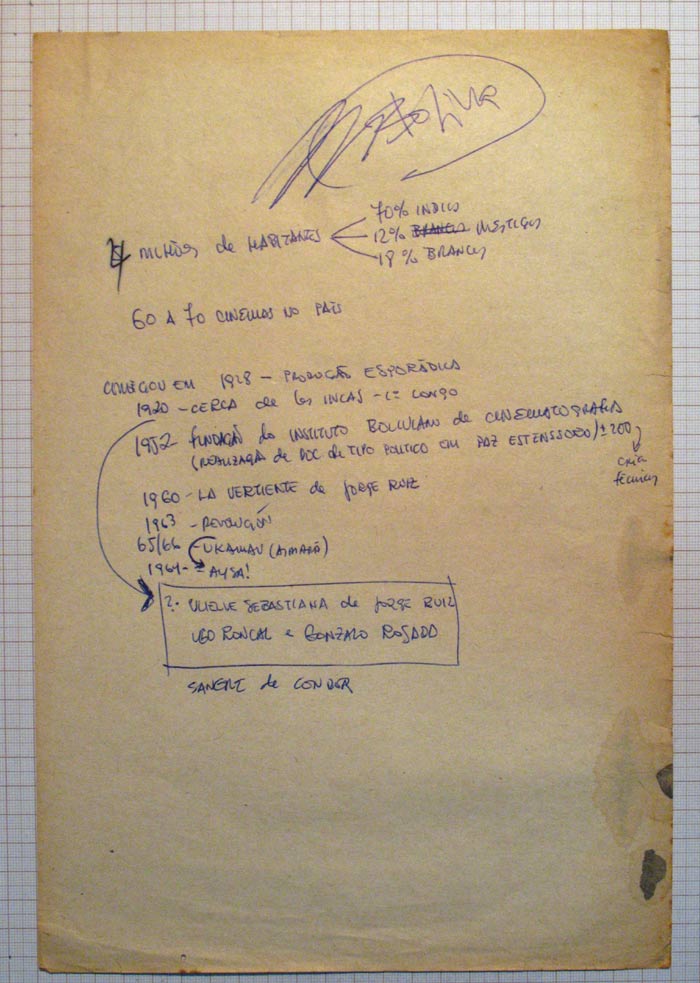 Bolívia
4 milhões de HABITANTES
70% INDIOS
12% BRANCOS MESTIÇOS
18% BRANCOS
60 A 70 CINEMAS NO PAÍS
COMEÇOU EM 1928 - PRODUÇÃO ESPORÁDICA
1920 - CERCA de los INCAS - 1º LONGO
1952 FUNDAÇÃO do INSTITUTO BOLIVIANO de CINEMATOGRAFIA
(REALIZAÇÃO de DOC de TIPO POLITICO EM PAZ ESTENSSORO) ± 200
cria
técnicos
1960 - LA VERTIENTE de JORGE RUIZ
1963 - REVOLUCIÓN
65/66 - UKAMAU (AIMARÁ)
1964 - AYSA!
?. VUELVE SEBASTIANA de JORGE RUIZ
UGO RONCAL e GONZALO ROSADO
SANGRE de CONDOR